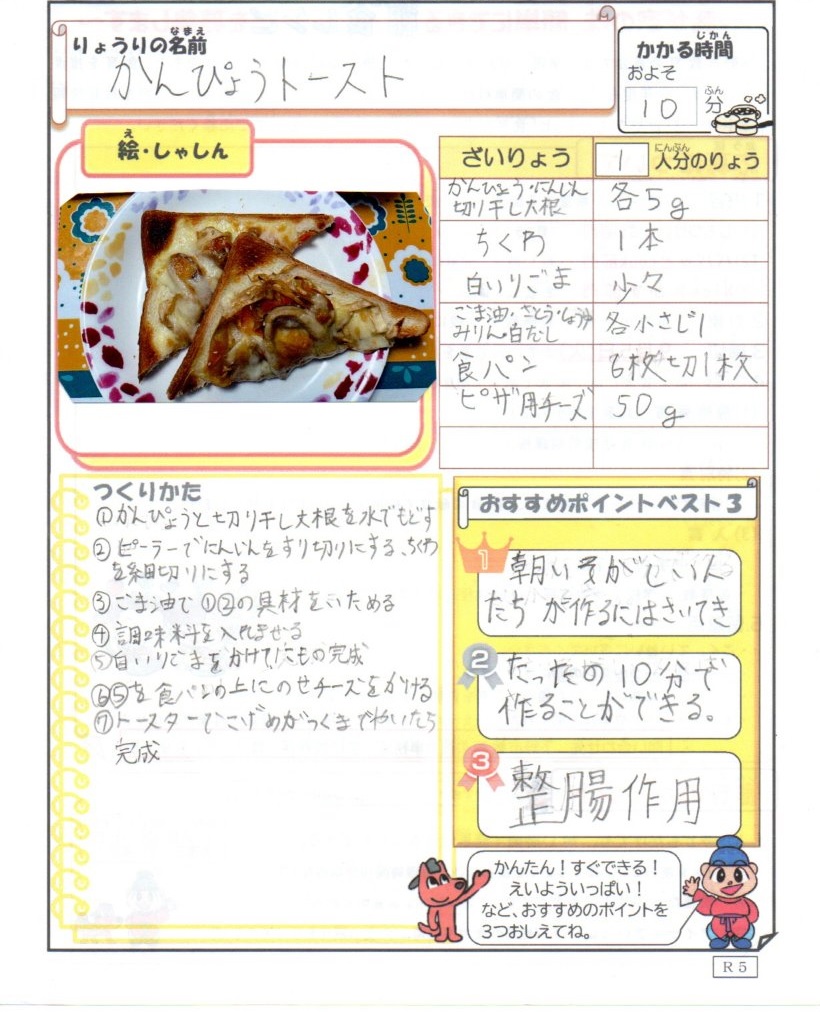 りょうりの名前
なまえ
かんぴょうトースト
かかる時間
じかん
およそ
10分
ふん
絵・しゃしん
え
ざいりょう
1人分のりょう
にんぶん
かんぴょう・にんじん
切り干し大根
各5g
ちくわ
1本
白いりごま
少々
ごま油・さとう・しょうゆ
みりん・白だし
各小さじ1
食パン
6枚切1枚
ピザ用チーズ
50g
つくりかた
①かんぴょうと切り干し大根を水でもどす
②ピーラーでにんじんをすり切りにする、ちくわ
を細切りにする
③ごま油で①②の具材をいためる
④調味料を入れませる
⑤白いりごまをかけてにもの完成
⑥⑤を食パンの上にのせチーズをかける
⑦トースターでこげめがつくまでやいたら
完成
おすすめポイントベスト3
1
朝いそがしい人
たちが作るにはさいてき
2
たったの10分で
作ることができる。
3
整腸作用
かんたん！すぐできる！
えいよういっぱい！
など、おすすめのポイントを
3つおしえてね。
R5